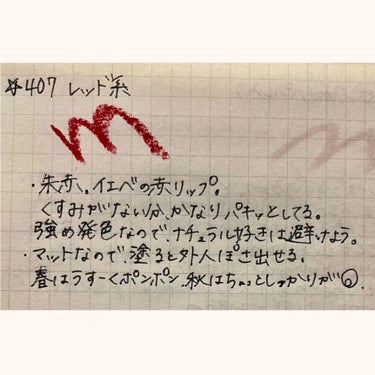 ☆407 レッド系
・朱赤、イエベの赤リップ。
くすみがない分、かなりパキッとしてる。
強め発色なので、ナチュラル好きは避けよう。
・マットなので、塗ると外人ぽさ出せる。
春はうすーくポンポン、秋はちょっとしっかりが◎。